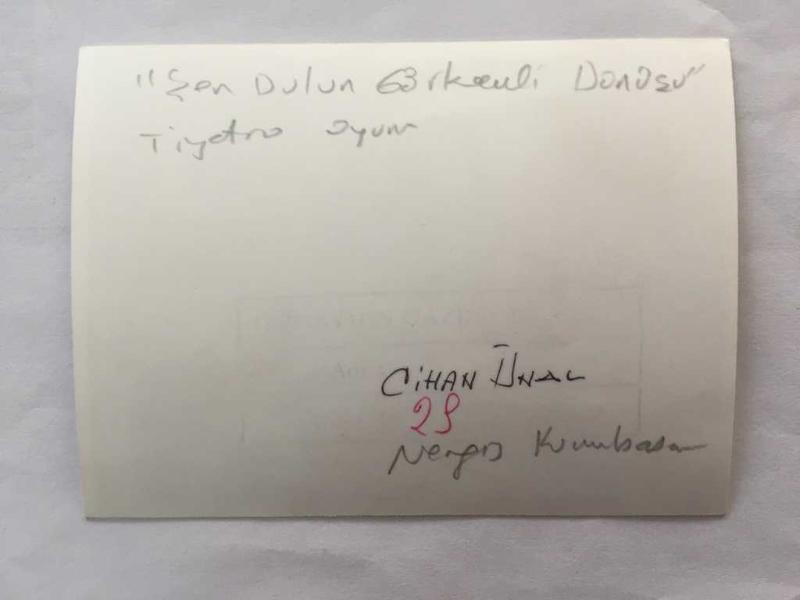 "Şen Dulun Görkemli Dönüşü"
Tiyatro oyunu
CİHAN ÜNAL
29
Nergis Kumbasar